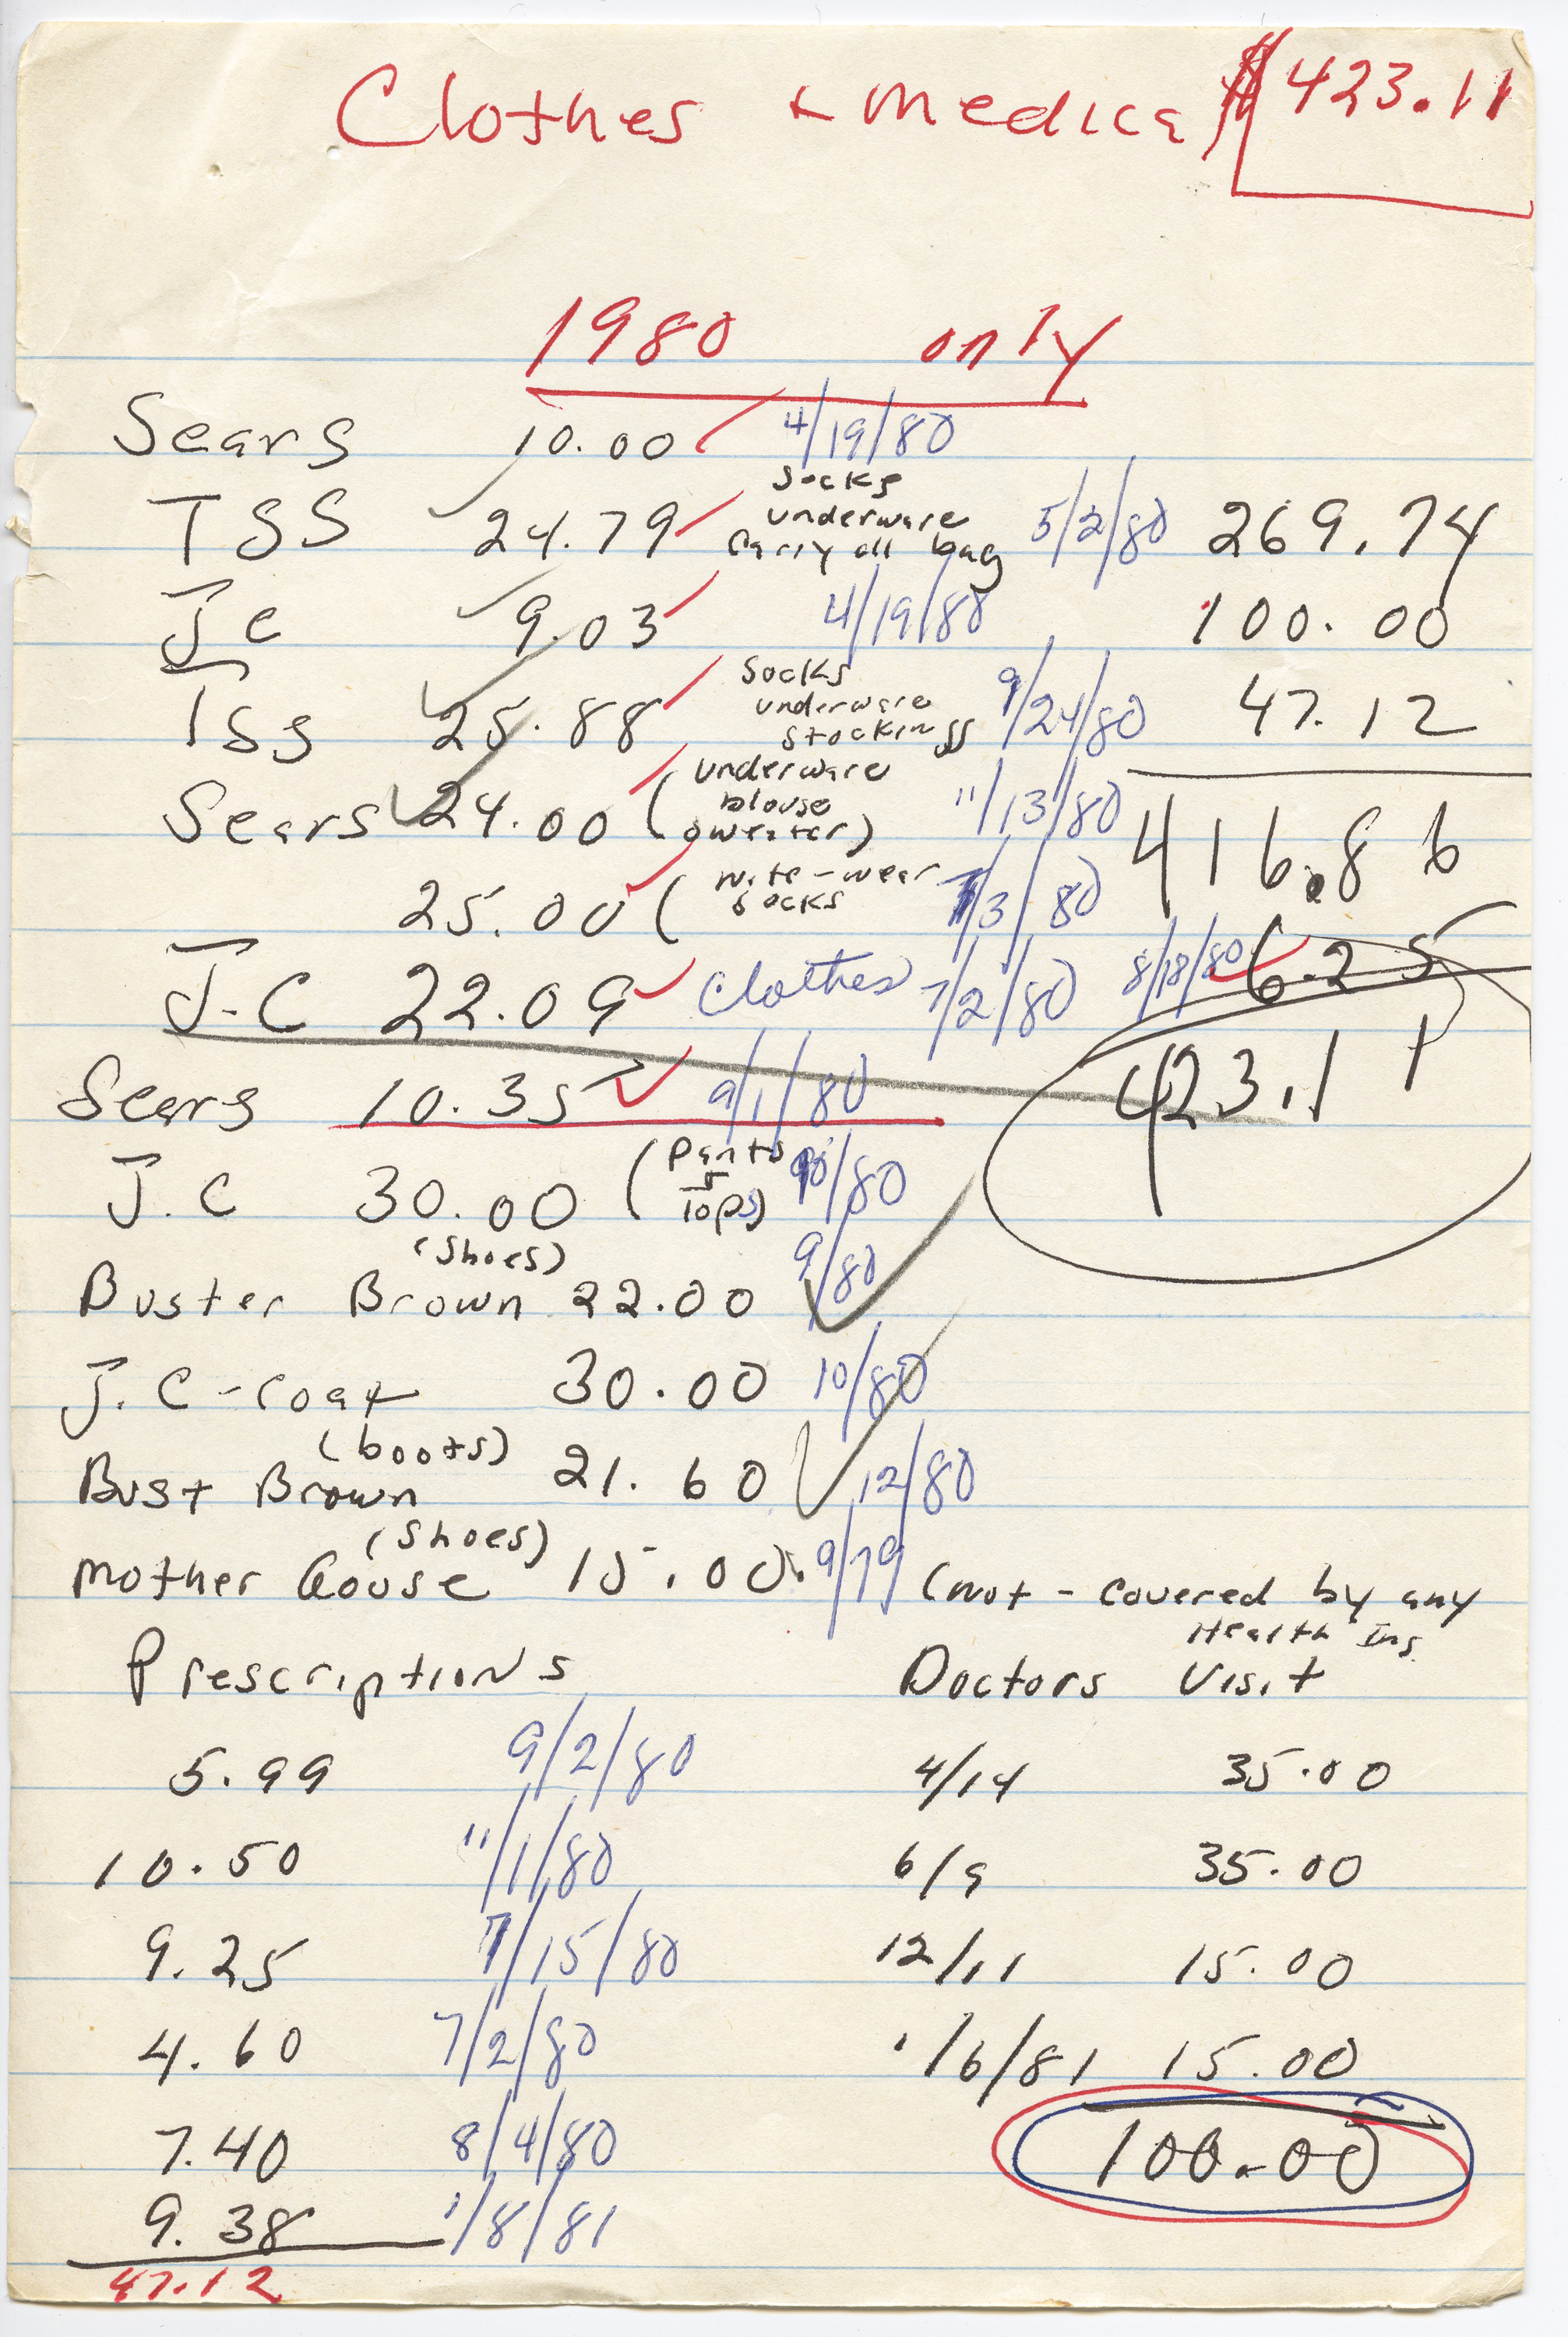 Clothes + Medical $423.11
1980 only
Sears 10.00 4/19/80
TSS 24.79 socks underware carry all bag 5/2/80 269.74
JC 9.03 4/19/80 100.00
Tss 25.88 socks underware stockings 9/24/80 47.12
Sears 24.00 (underware blouse sweater) 11/13/80 416.86
25.00 (nite-wear socks 7/3/80
J.C 22.09 Clothes 7/2/80 8/18/80 6.25
423.11
Sears 10.35 9/1/80
J.C 30.00 (Pants + Tops) /80
(shoes)
Buster Brown 22.00 9/80
J.C-coat 30.00 10/80
(boots)
Bust Brown 21.60 12/80
(shoes)
Mother Goose 15.00 9/79 (not-covered by any
Health Ins.
Prescriptions Doctors Visit
5.99 9/2/80 4/14 35.00
10.50 11/1/80 6/9 35.00
9.25 7/15/80 12/11 15.00
4.60 7/2/80 1/6/81 15.00
7.40 8/4/80 100.00
9.38 1/8/81
47.12